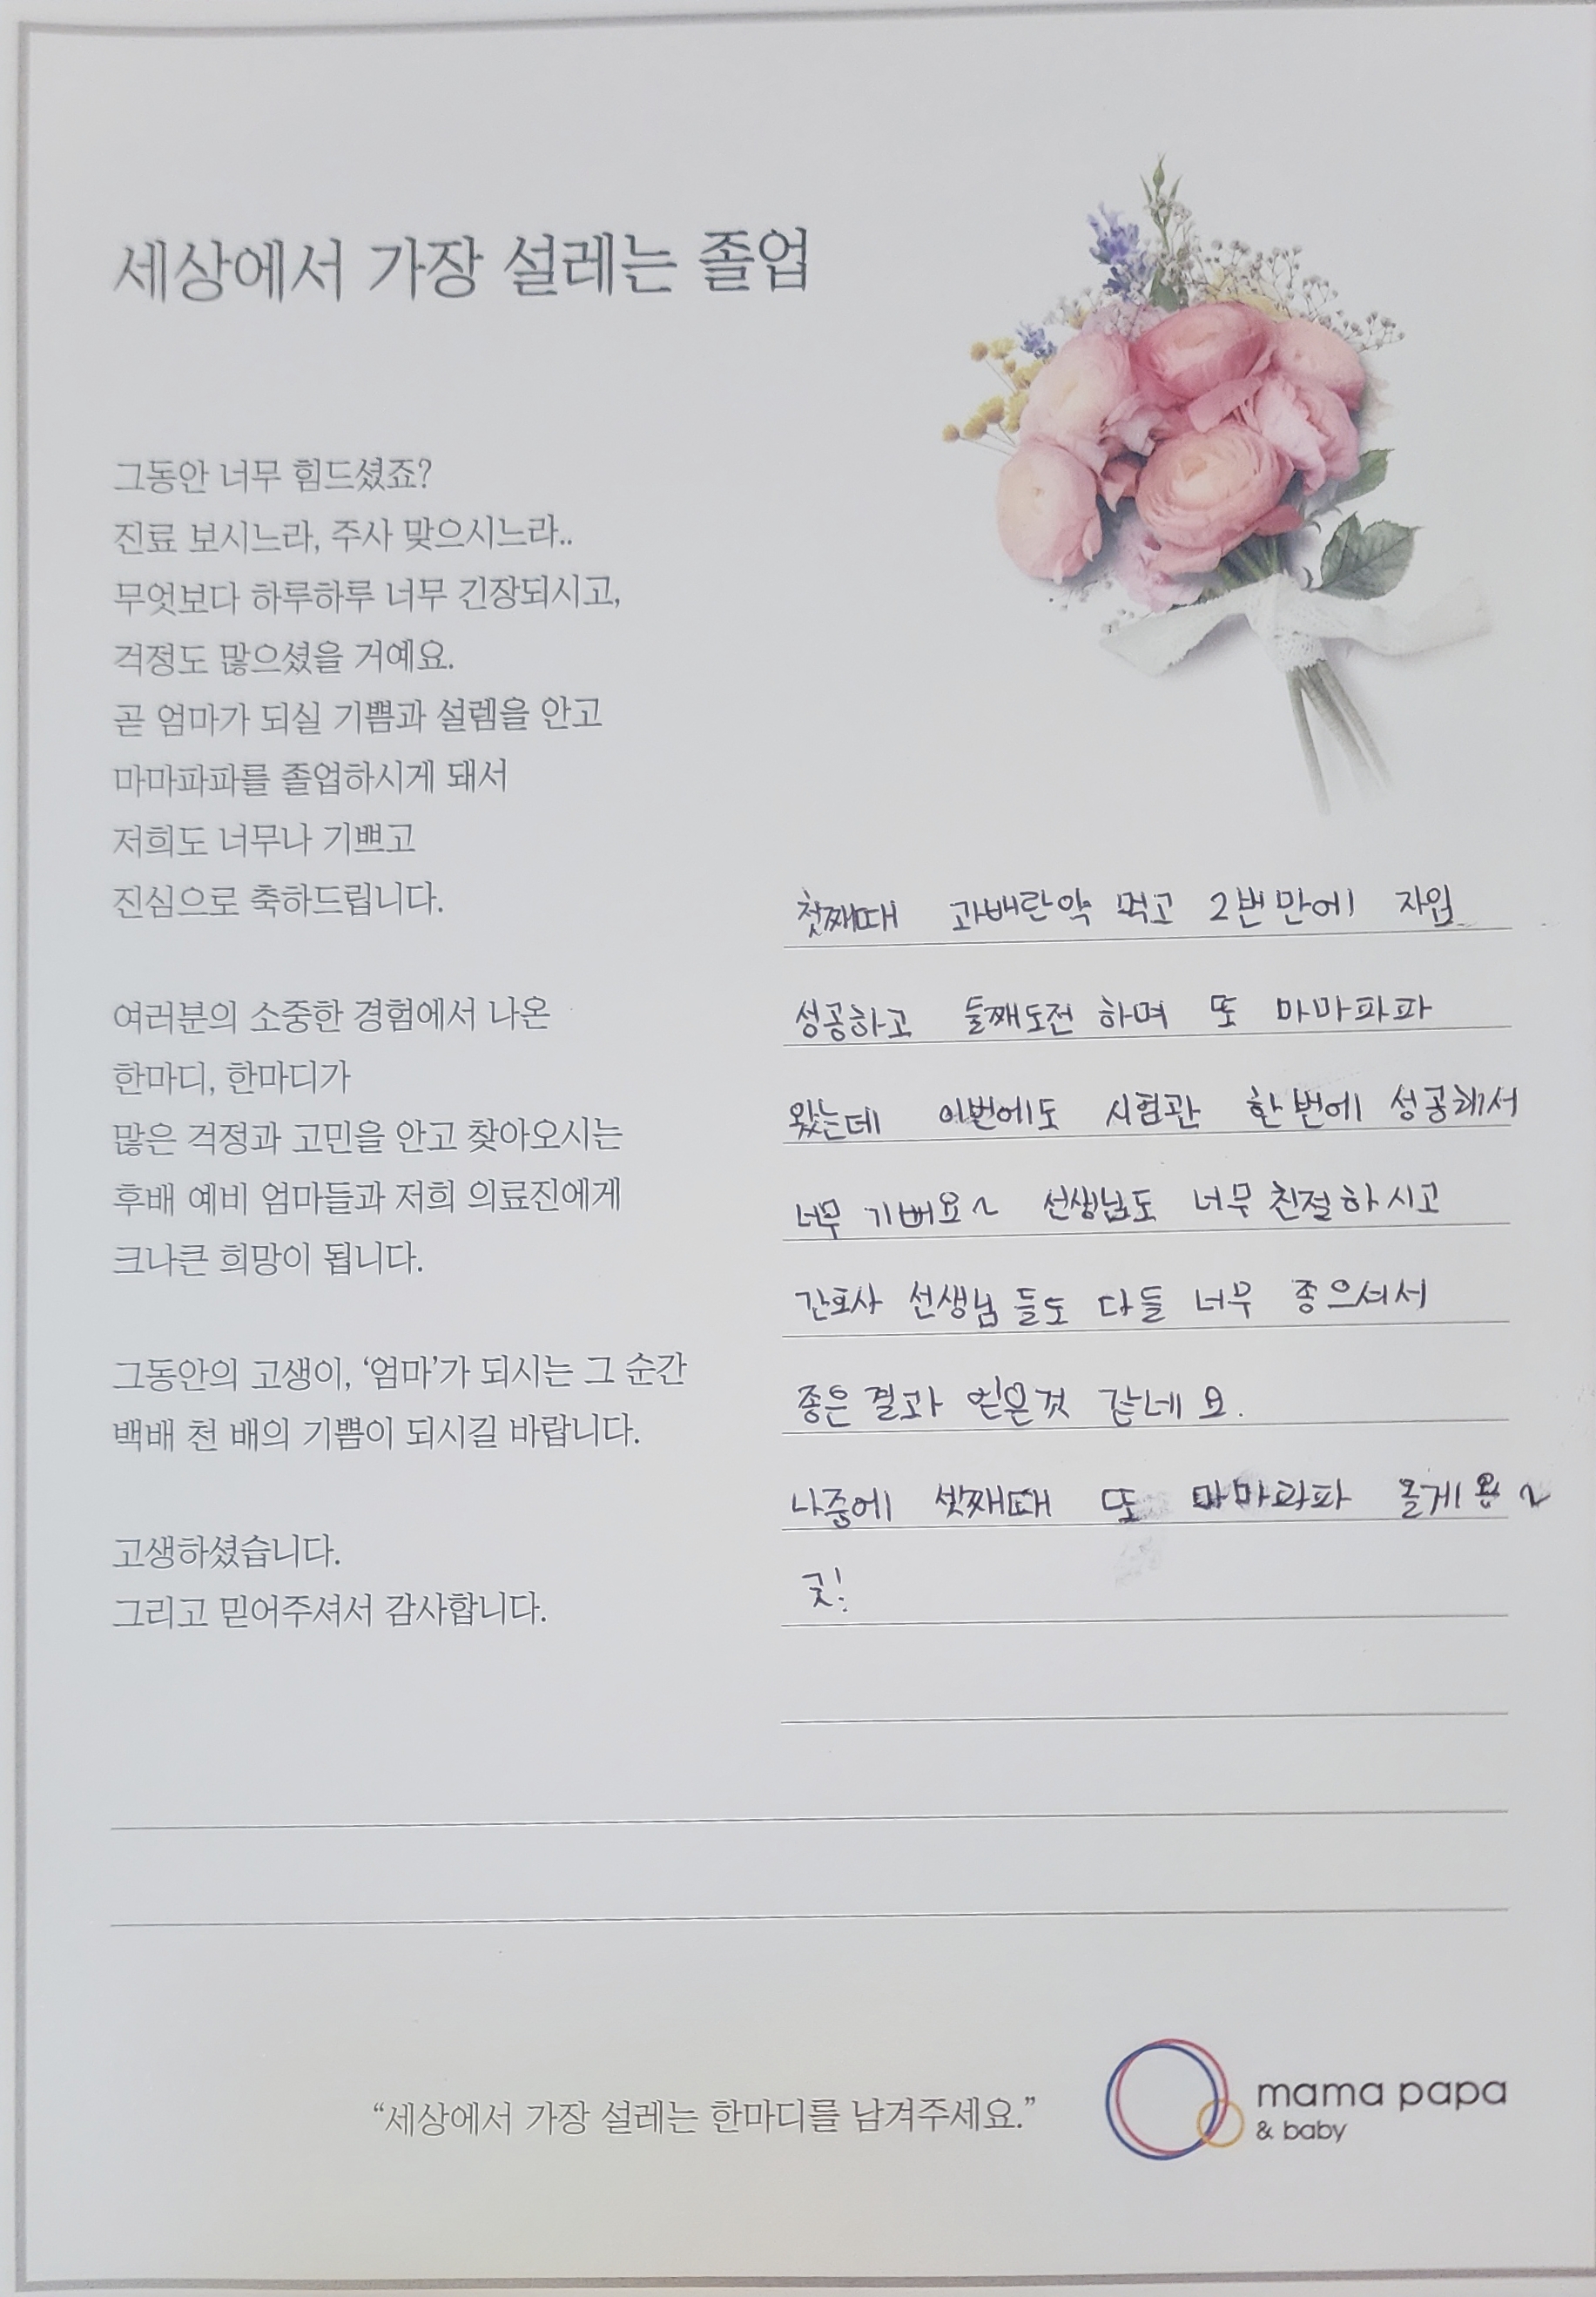 세상에서 가장 설레는 졸업
그동안 너무 힘드셨죠?
진료 보시느라, 주사 맞으시느라..
무엇보다 하루하루 너무 긴장되시고,
걱정도 많으셨을 거예요.
곧 엄마가 되실 기쁨과 설렘을 안고
마마파파를 졸업하시게 돼서
저희도 너무나 기쁘고
진심으로 축하드립니다.
여러분의 소중한 경험에서 나온
한마디, 한마디가
많은 걱정과 고민을 안고 찾아오시는
후배 예비 엄마들과 저희 의료진에게
크나큰 희망이 됩니다.
그동안의 고생이, ‘엄마’가 되시는 그 순간
백배 천 배의 기쁨이 되시길 바랍니다.
고생하셨습니다.
그리고 믿어주셔서 감사합니다.
첫째때 과배란약 먹고 2번만에 자임
성공하고 둘째도전 하며 또 마마파파
왔는데 이번에도 시험관 한번에 성공해서
너무 기뻐요~ 선생님도 너무 친절하시고
간호사 선생님들도 다들 너무 좋으셔서
좋은결과 얻은것 같네요.
나중에 셋째때 또 마마파파 올게용~
굿!
“세상에서 가장 설레는 한마디를 남겨주세요.”
mama papa
& baby